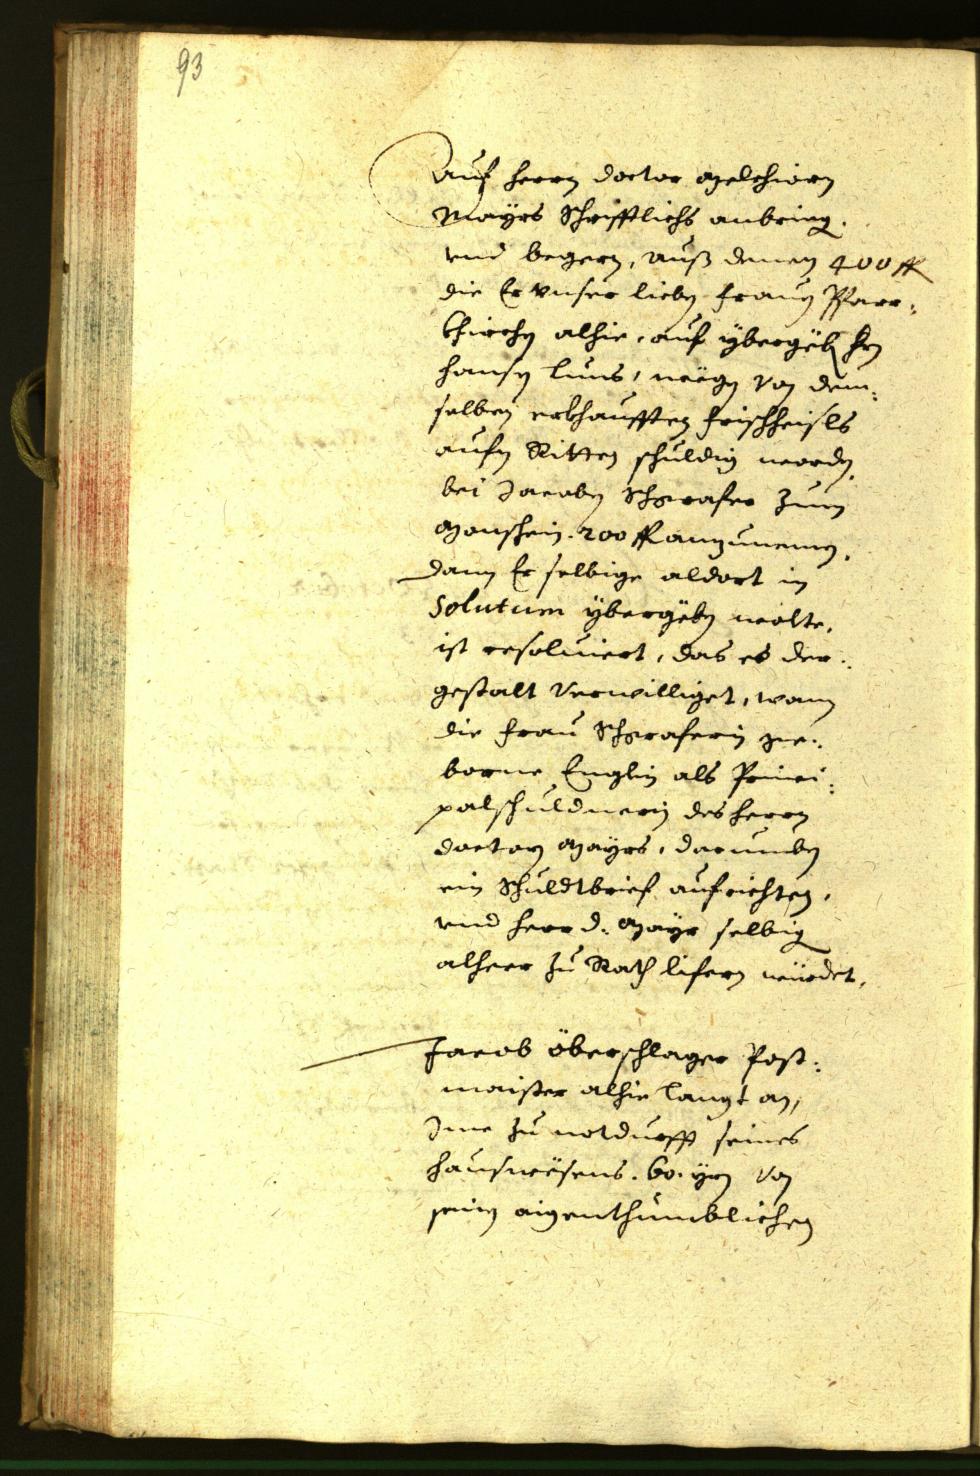 93
Auf herrn doctor Melchiorn
Mayrs Schrifftlichs anbring.
vnd begern, auß denen 400 fl
die Er vnser lieben Frauen Pfarr¬
khirchen alhie, auf ybergab hrn
hansen Luns, wegen von dem¬
selben erkhaufften Frischheisls
aufn Ritten schuldig worden,
bei Jacoben Schgrafer zum
Monschein. 200 fl anzunemen,
dann Er selbige aldort in
Solutum ybergeben wolte,
ist resoluiert, das es der¬
gestalt verwilliget, wann
die Frau Schgraferin ge¬
borne Englin als Princi¬
palschuldnerin des herrn
doctorn Mayrs, darumben
ein Schuldtbrief aufrichten,
vnd herr d: Mayr selbig
alheer zu Rath lifern würdet.
Jacob Oberschlager Post¬
maister alhie langt an,
Ime zu notdurfft seines
hauswesens. 60. yrn von
seinen aigenthumblichen